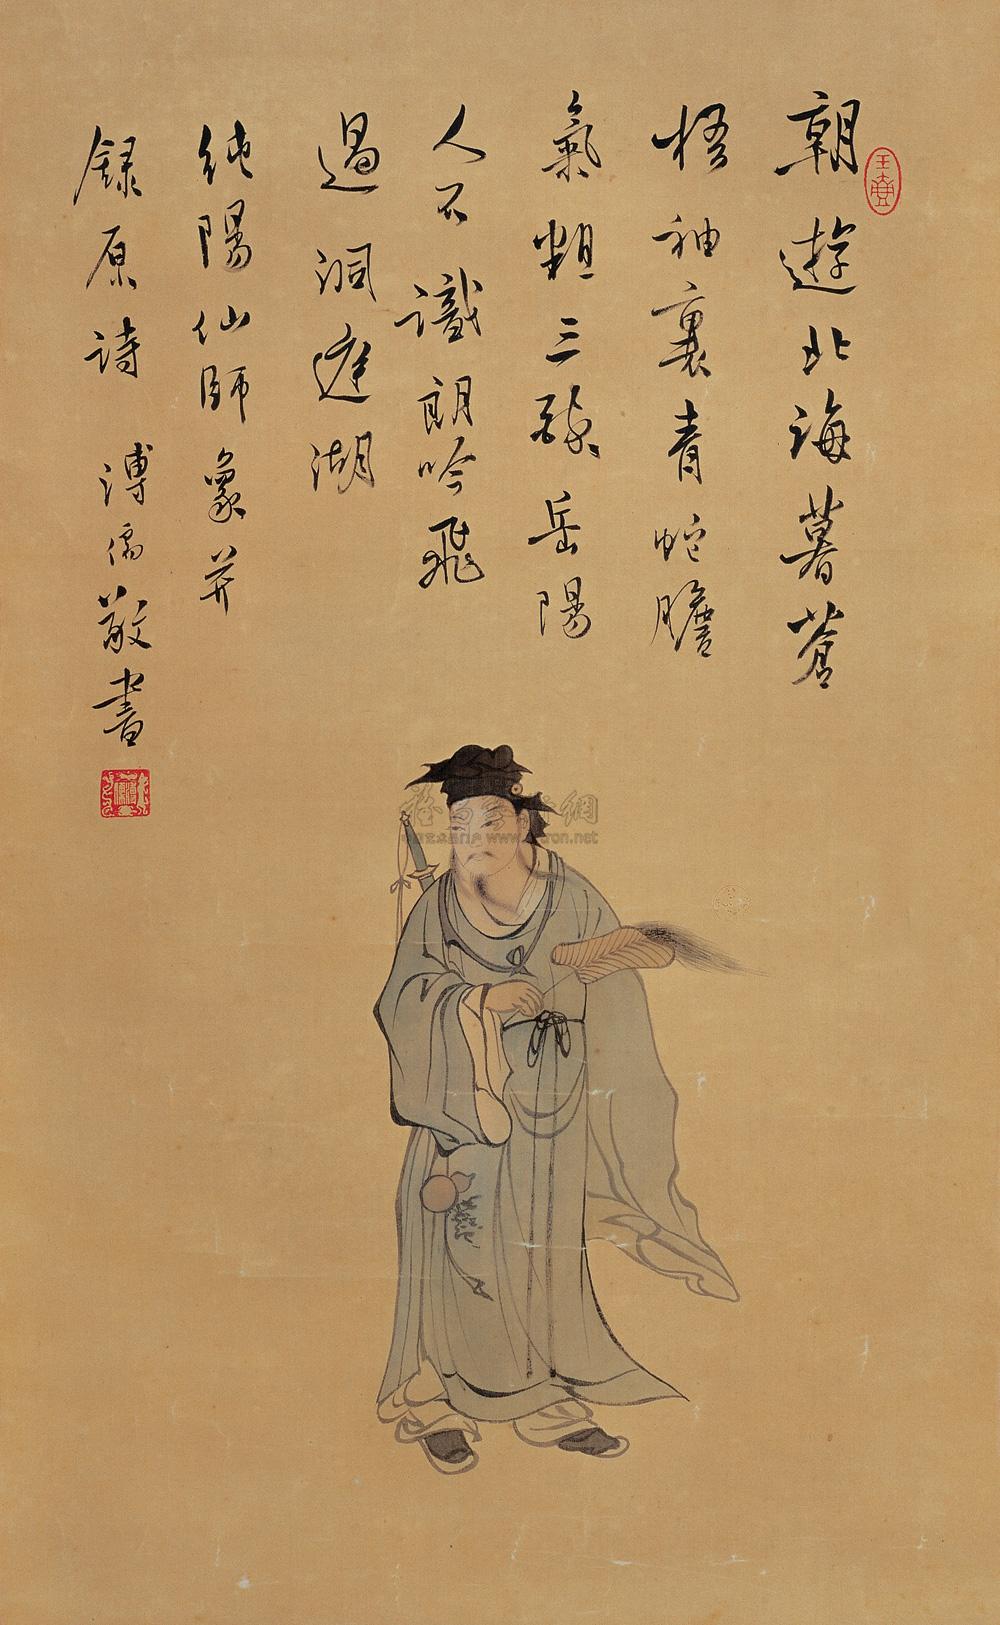 朝遊北海暮蒼
梧袖裏青蛇膽
氣粗三醉岳陽
人不識朗吟飛
過洞庭湖
純陽仙師象并
錄原詩 溥儒敬書
www.
ron.net